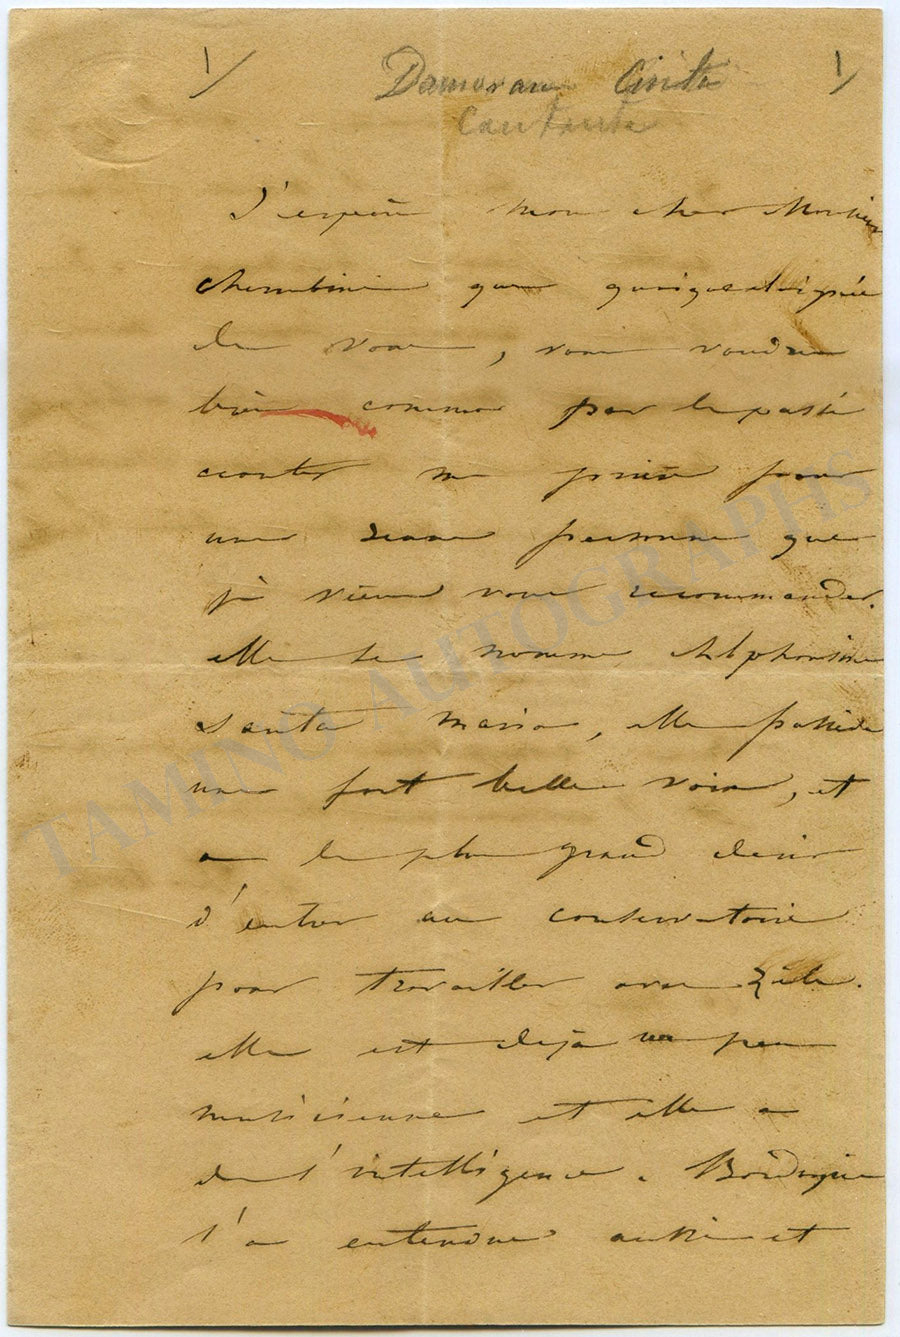 1/ Damoreau Cinti 1/
Cantante
J'espère mon cher Monsieur
cherubini que quoique eloignée
de vous, vous voudrez
bien comme par le passé
ecouter ma prière pour
une jeune personne que
je viens vous recommander.
elle se nomme Alphonsine
santa maria, elle possède
une fort belle voix, et
a le plus grand desir
d'entrer au conservatoire
pour travailler avec zèle.
elle est dejà un peu
musicienne et elle a
de l'intelligence. Bordogni
l'a entendue aussi et
TAMINO AUTOGRAPHS